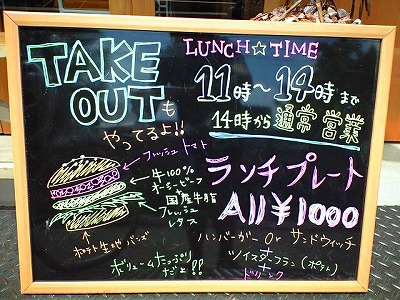 TAKE
OUTも
やってるよ!!
フレッシュトマト
牛100%
オージービーフ
国産牛脂
フレッシュ
レタス
ポテト生地バンズ
ボリュームたっぷり
だよ!!
LUNCH☆TIME
11時～14時まで
14時から通常営業
ランチプレート
All¥1000
ハンバーガー Or サンドウィッチ
+
ツイスターフライ(ポテト)
+
ドリンク